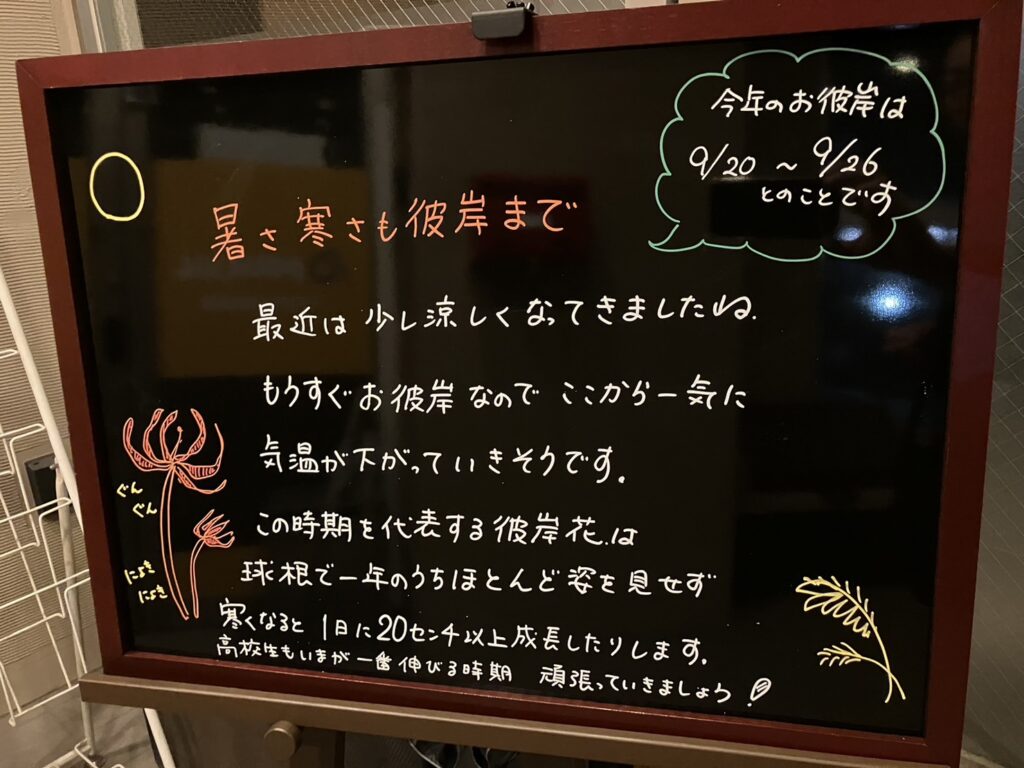 今年のお彼岸は
9/20 ~ 9/26
とのことです
暑さ寒さも彼岸まで
最近は 少し涼しくなってきましたね.
もうすぐお彼岸なので ここから一気に
気温が下がっていきそうです.
この時期を代表する彼岸花は
球根で一年のうちほとんど姿を見せず
寒くなると 1日に20センチ以上成長したりします.
高校生もいまが一番伸びる時期 頑張っていきましょう!
ぐん
ぐん
にょき
にょき